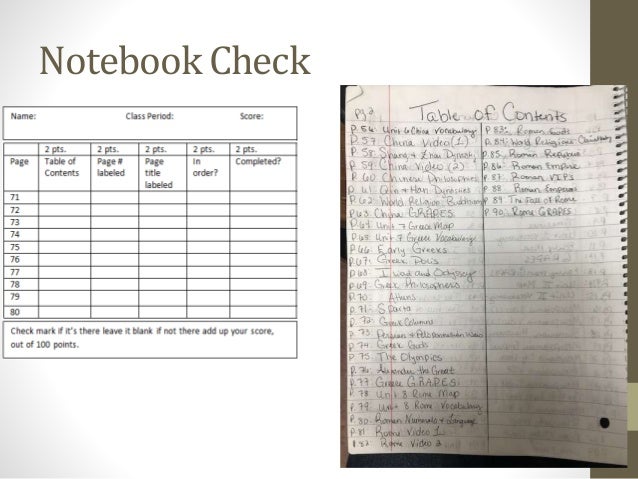 Notebook Check
Name: Class Period: Score:
2 pts. 2 pts. 2 pts. 2 pts. 2 pts.
Page Table of Contents Page # labeled Page title labeled In order? Completed?
71
72
73
74
75
76
77
78
79
80
Check mark if it's there leave it blank if not there add up your score,
out of 100 points.
pg 2
Table of Contents
P. 56 Unit 6 China Vocabulary
P. 57 China Video (1)
P. 58 Shang + Zhou Dynasty
P. 59 China Video (2)
P. 60 Chinese Philosophies
P. 61 Qin + Han Dynasties
P. 62 World Religion Buddhism
P. 63 China GRAPES
P. 64 Unit 7 Greece Map
P. 65 Unit 7 Greece Vocabulary
P. 66 Early Greeks
P. 67 Greek Polis
P. 68 Iliad and Odyssey
P. 69 Greek Philosophers
P. 70 Athens
P. 71 Sparta
P. 72 Greek Columns
P. 73 Persian + Peloponnesian Wars
P. 74 Greek Gods
P. 75 The Olympics
P. 76 Alexander the Great
P. 77 Greece GRAPES
P. 78 Unit 8 Rome Map
P. 79 Unit 8 Rome Vocabulary
P. 80 Roman Numerals + Language
P. 81 Rome Video 1
P. 82 Rome Video 2
P. 83: Roman Gods
P. 84: World Religions
P. 85 Roman Republic
P. 86 Roman Empire
P. 87 Roman VIPs
P. 88 Roman Emperors
P. 89 The Fall of Rome
P. 90 Rome GRAPES